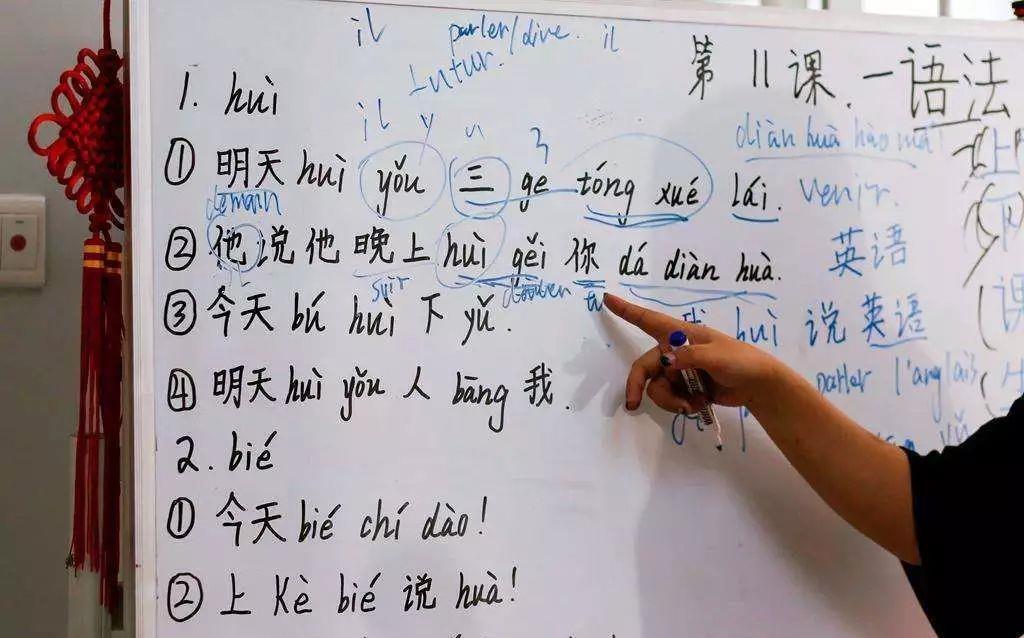 il parler/dire. il
Futur.
第11课.一语法
1. huì
il y
diàn huà hào mǎ!
① 明天 huì yǒu 三 ge tóng xué lái. venir.
demain
② 他说他晚上 huì gěi 你 dá diàn huà. 英语
soir tu
③ 今天 bú huì 下 yǔ. 我 huì 说英语
parler l'anglais
④ 明天 huì yǒu 人 bāng 我.
2. bié
① 今天 bié chí dào!
② 上 Kè bié 说 huà!